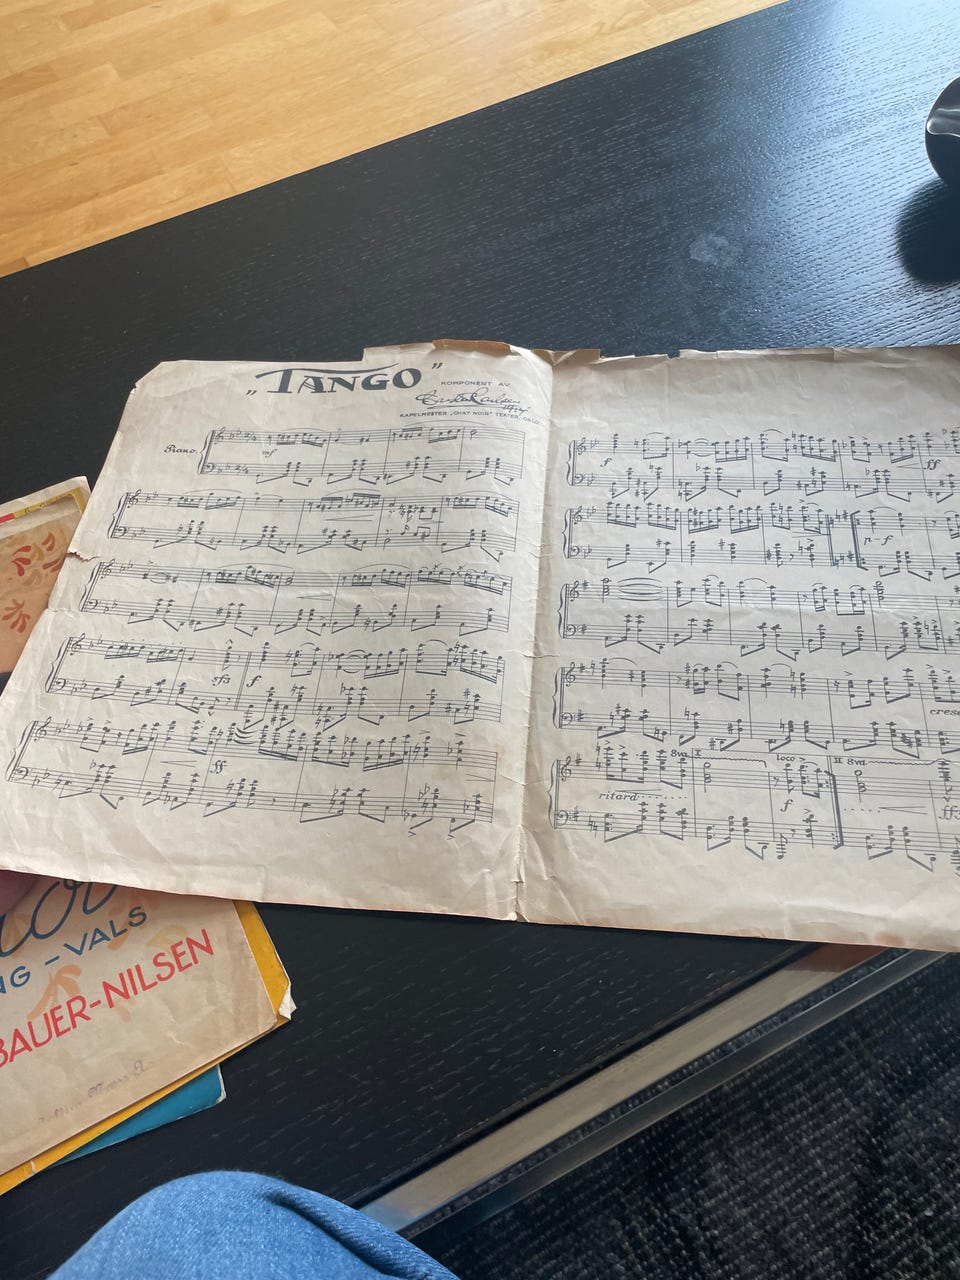 „TANGO”
KOMPONERT AV
KAPELMESTER „CHAT NOIR” TEATER, OSLO
Piano.
mf
sfz f
ff
f ff
p-f
cresc
8va I loco II 8va
ritard
f
NG-VALS
BAUER-NILSEN